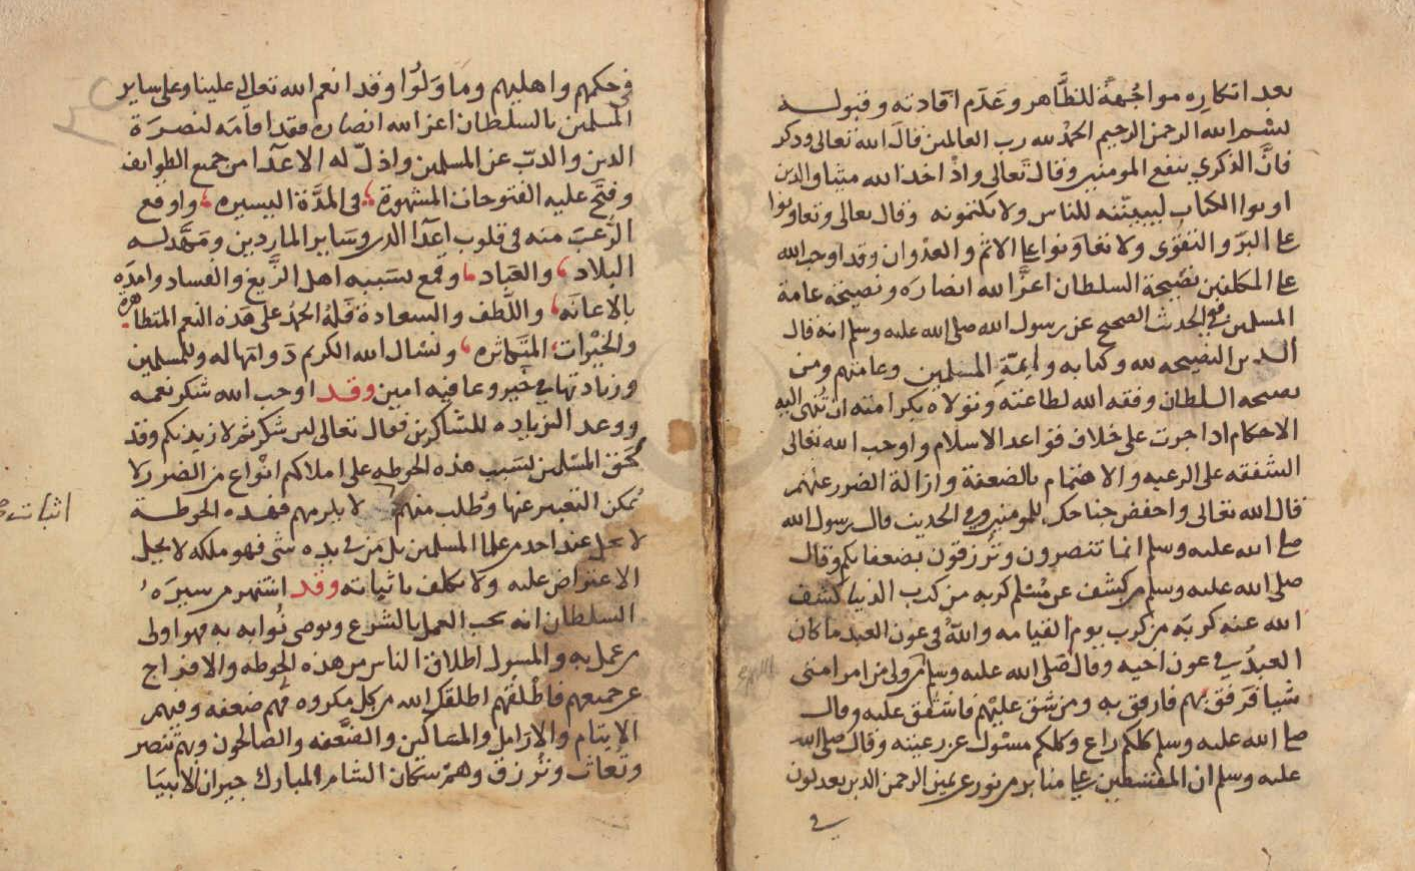 بعد انكاره مواجهة للظاهر وعدم افادته وقبوله
بسم الله الرحمن الرحيم الحمد لله رب العالمين قال الله تعالى وذكر
فان الذكرى تنفع المومنين وقال تعالى واذ اخذ الله ميثاق الذين
اوتوا الكتاب ليبيننه للناس ولا يكتمونه وقال تعالى وتعاونوا
على البر والتقوى ولا تعاونوا على الاثم والعدوان وقد اوجب الله
على المكلفين نصيحة السلطان اعز الله انصاره ونصيحة عامة
المسلمين ففي الحديث الصحيح عن رسول الله صلى الله عليه وسلم انه قال
الدين النصيحه لله وكتابه وايمة المسلمين وعامتهم ومن
نصيحه السلطان وفقه الله لطاعته وتولاه بكرامته ان تنهى اليه
الاحكام اذا جرت على خلاف قواعد الاسلام واوجب الله تعالى
الشفقه على الرعيه والاهتمام بالضعفة وازالة الضرر عنهم
قال الله تعالى واخفض جناحك للمومنين وفي الحديث قال رسول الله
صلى الله عليه وسلم انما تنصرون وترزقون بضعفايكم وقال
صلى الله عليه وسلم من كشف عن مسلم كربه من كرب الدنيا كشف
الله عنه كربة من كرب يوم القيامه والله في عون العبد ما كان
العبد في عون اخيه وقال صلى الله عليه وسلم من ولي من امر امتي
شيا فرفق بهم فارفق به ومن شق عليهم فاشقق عليه وقال
صلى الله عليه وسلم كلكم راع وكلكم مسئول عن رعيته وقال صلى الله
عليه وسلم ان المقسطين على منابر من نور عن يمين الرحمن الذين يعدلون
في
في حكمهم واهليهم وما ولوا وقد انعم الله تعالى علينا وعلى ساير
المسلمين بالسلطان اعز الله انصاره فقد اقامه لنصرة
الدين والذب عن المسلمين واذل له الاعدا من جميع الطوايف
وفتح عليه الفتوحات المشهورة في المدة اليسيره واوقع
الرعب منه في قلوب اعدا الدين وساير الماردين ومهد له
البلاد والعباد وقمع بسببه اهل الزيغ والفساد وامده
بالاعانه واللطف والسعادة فلله الحمد على هذه النعم المتظاهرة
والخيرات المتكاثره ونسال الله الكريم دوامها له وللمسلمين
وزيادتها في خير وعافيه امين وقد اوجب الله شكر نعمه
ووعد الزياده للشاكرين فقال تعالى لين شكرتم لازيدنكم وقد
لحق المسلمين بسبب هذه الحوطه على املاكهم انواع من الضرر لا
يمكن التعبير عنها وطلب منهم لا يلزمهم فهذه الحوطة
لا تحل عند احد من علما المسلمين بل من في يده شي فهو ملكه لا يحل
الاعتراض عليه ولا يكلف باثباته وقد اشتهر من سيره
السلطان انه يحب العمل بالشرع ويوصى نوابه به فهو اولى
من عمل به والمسول اطلاق الناس من هذه الحوطه والافراج
عن جميعهم فاطلقهم اطلقك الله من كل مكروه فهم ضعفه وفيهم
الايتام والارامل والمساكين والضعفه والصالحون وبهم تنصر
وتغاث وترزق وهم سكان الشام المبارك جيران الانبيا